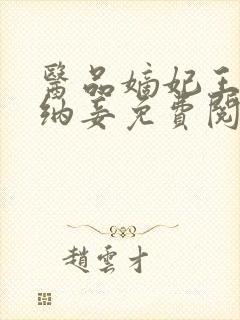 醫品嫡妃王
納妾免費閱
趙雲才